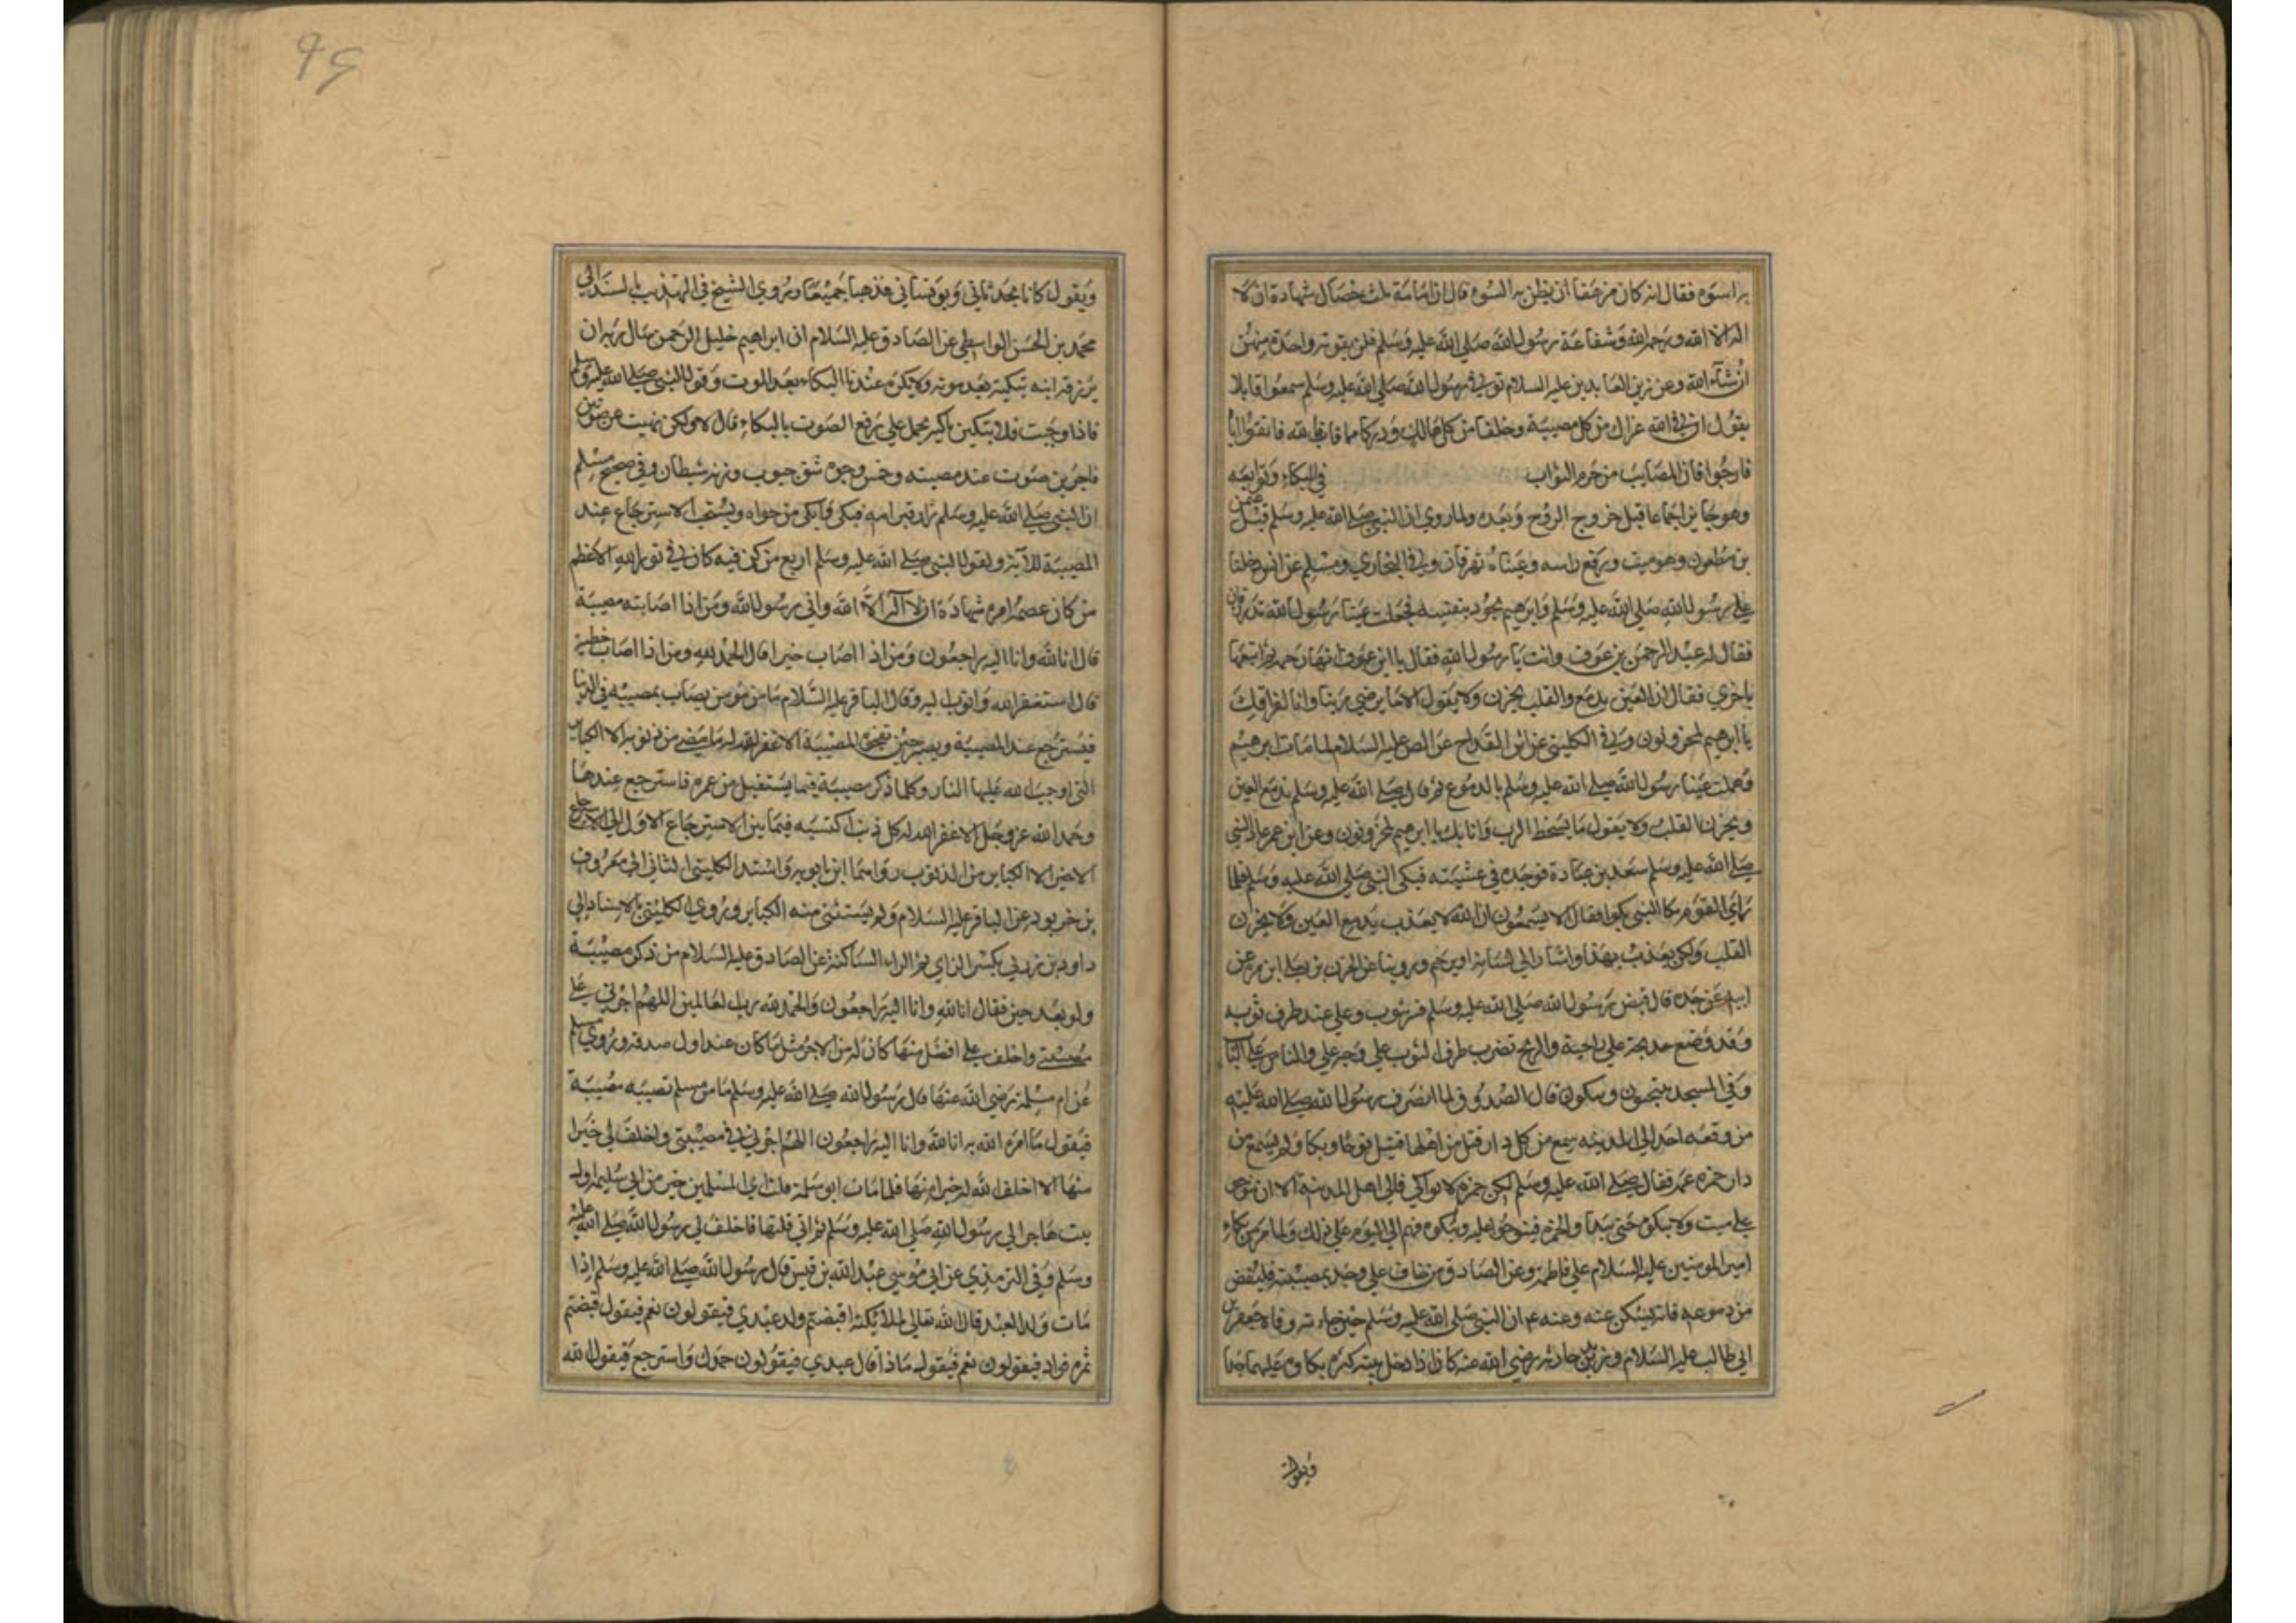 به اسوه فقال انه كان مرهقا ان يظن به السوء قال ان امامه ثلث خصال شهادة ان لا
اله الا الله ورحمة الله وشفاعة رسول الله صلى الله عليه وسلم فلن يفوته واحدة منهن
انشآء الله وعن زين العابدين عليه السلام توفي رسول الله صلى الله عليه وسلم سمعوا قايلا
يقول ان في الله عزاء من كل مصيبة وخلفا من كل هالك ودركا مما فات فبالله فاتقوا واياه
فارجوا فان المصايب من حرم الثواب في البكاء وتوابعه
وهو جايز اجماعا قبل خروج الروح وبعده ولما روي ان النبي صلى الله عليه وسلم قبل عثمن
بن مظعون وهو ميت ورفع راسه وعيناه تهرقان وفي البخاري ومسلم عن انس دخلنا
على رسول الله صلى الله عليه وسلم وابرهيم يجود بنفسه فجعلت عينا رسول الله تذرفان
فقال له عبد الرحمن بن عوف وانت يا رسول الله فقال يا ابن عوف انها رحمة ثم اتبعها
باخري فقال ان العين تدمع والقلب يحزن ولا يقول الا ما يرضي ربنا وانا لفراقك
يا ابرهيم لمحزونون وفي الكليني عن ابن القداح عن الص عليه السلام لما مات ابرهيم
وهملت عينا رسول الله صلى الله عليه وسلم بالدموع ثم قال صلى الله عليه وسلم تدمع العين
ويحزن القلب ولا يقول ما يسخط الرب وانا بك يا ابرهيم لمحزونون وعن ابن عمر عاد النبي
صلى الله عليه وسلم سعد بن عبادة فوجده في غشيته فبكى النبي صلى الله عليه وسلم فلما
راى القوم بكا النبي بكوا فقال الا يسمعون ان الله لا يعذب بدمع العين ولا يحزن
القلب ولكن يعذب بهذا واشار الى لسانه او يرحم وروينا عن الحرث بن يعلى ابن مرة عن
ابيه عن جده قال قبض رسول الله صلى الله عليه وسلم فستر بثوب وعلي عند طرف ثوبه
وقد وضع خديه على راحته والريح تضرب طرف الثوب على وجه علي والناس على الباب
وفي المسجد ينتحبون ويبكون قال الصدوق لما انصرف رسول الله صلى الله عليه
من وقعه احد الى المدينه سمع من كل دار قتل من اهلها قتيل نوحا وبكا ولم يسمع من
دار حمزة عمه فقال صلى الله عليه وسلم لكن حمزه لا بواكي فالى اهل المدينه الا ان ينوحوا
على ميت ولا يبكوه حتى يبدأوا بحمزه فينوحوا عليه ويبكوه فهم الى اليوم على ذلك ولما مر من بكاء
امير المومنين عليه السلام على فاطمة وعن الصادق من خاف على وجد بمصيبته فليفض
من دموعه فانه يسكن عنه وعنه ع ان النبي صلى الله عليه وسلم حين جاءته وفاة جعفر بن
ابي طالب عليه السلام وزيد بن حارثه رضي الله عنه كان اذا دخل بيته كثر بكاوه عليهما جدا
ويقول
٩٤
ويقول كانا يحدثاني ويونساني فذهبا جميعا وروي الشيخ في التهذيب بالسند الى
محمد بن الحسن الواسطي عن الصادق عليه السلام ان ابراهيم خليل الرحمن سال ربه ان
يرزقه ابنه تبكيه بعد موته ولا يكره عندنا البكاء بعد الموت وقول النبي صلى الله عليه وسلم
فاذا وجبت فلا تبكين باكية يحمل على رفع الصوت بالبكاء قال لا ولكن نهيت عن صوتين
فاجرين صوت عند مصيبته وخمش وجوه شق جيوب ورنه شيطان وفي صحيح مسلم
ان النبي صلى الله عليه وسلم زار قبر امه فبكى وابكى من حواه ويستحب الاسترجاع عند
المصيبة للآية ولقول النبي صلى الله عليه وسلم اربع من كن فيه كان في نور الله الاعظم
من كان عصمة امره شهادة ان لا آله الا الله واني رسول الله ومن اذا اصابته مصيبة
قال انا لله وانا اليه راجعون ومن اذا اصاب خيرا قال الحمد لله ومن اذا اصاب خطية
قال استغفر الله واتوب اليه وقال الباقر عليه السلام ما من مومن يصاب بمصيبه في الدنيا
فيسترجع عند المصيبة ويصبر حين تفجئ المصيبة الا غفر الله له ما مضى من ذنوبه الا الكباير
التي اوجب الله عليها النار وكلما ذكر مصيبة فيما يستقبل من عمره فاسترجع عندها
وحمد الله عز وجل الا غفر الله له كل ذنب اكتسبه فيما بين الاسترجاع الاول الى الاسترجاع
الاخير الا الكباير من الذنوب رواهما ابن بابويه واسند الكليني الثاني الى معروف
بن خربوذ عن الباقر عليه السلام ولم يستثنى منه الكباير وروي الكليني بالاسناد الى
داود بن زربي بكسر الزاي ثم الراء الساكنة عن الصادق عليه السلام من ذكر مصيبة
ولو بعد حين فقال انا لله وانا اليه راجعون والحمد لله رب العالمين اللهم اجرني على
مصيبتي واخلف على افضل منها كان له من الاجر مثل ما كان عند اول صدمة وروي مسلم
عن ام سلمة رضي الله عنها قال رسول الله صلى الله عليه وسلم ما من مسلم تصيبه مصيبة
فيقول ما امره الله به انا لله وانا اليه راجعون اللهم اجرني في مصيبتي واخلف لي خيرا
منها الا اخلف الله له خيرا منها فلما مات ابو سلمة قلت اي المسلمين خير من ابي سليمه اول
بيت هاجر الى رسول الله صلى الله عليه وسلم ثم اني قلتها فاخلف لي رسول الله صلى الله عليه
وسلم وفي الترمذي عن ابي موسى عبد الله بن قيس قال رسول الله صلى الله عليه وسلم اذا
مات ولد العبد قال الله تعالى لملائكته اقبضتم ولد عبدي فيقولون نعم فيقول قبضتم
ثمرة فواده فيقولون نعم فيقول ماذا قال عبدي فيقولون حمدك واسترجع فيقول الله